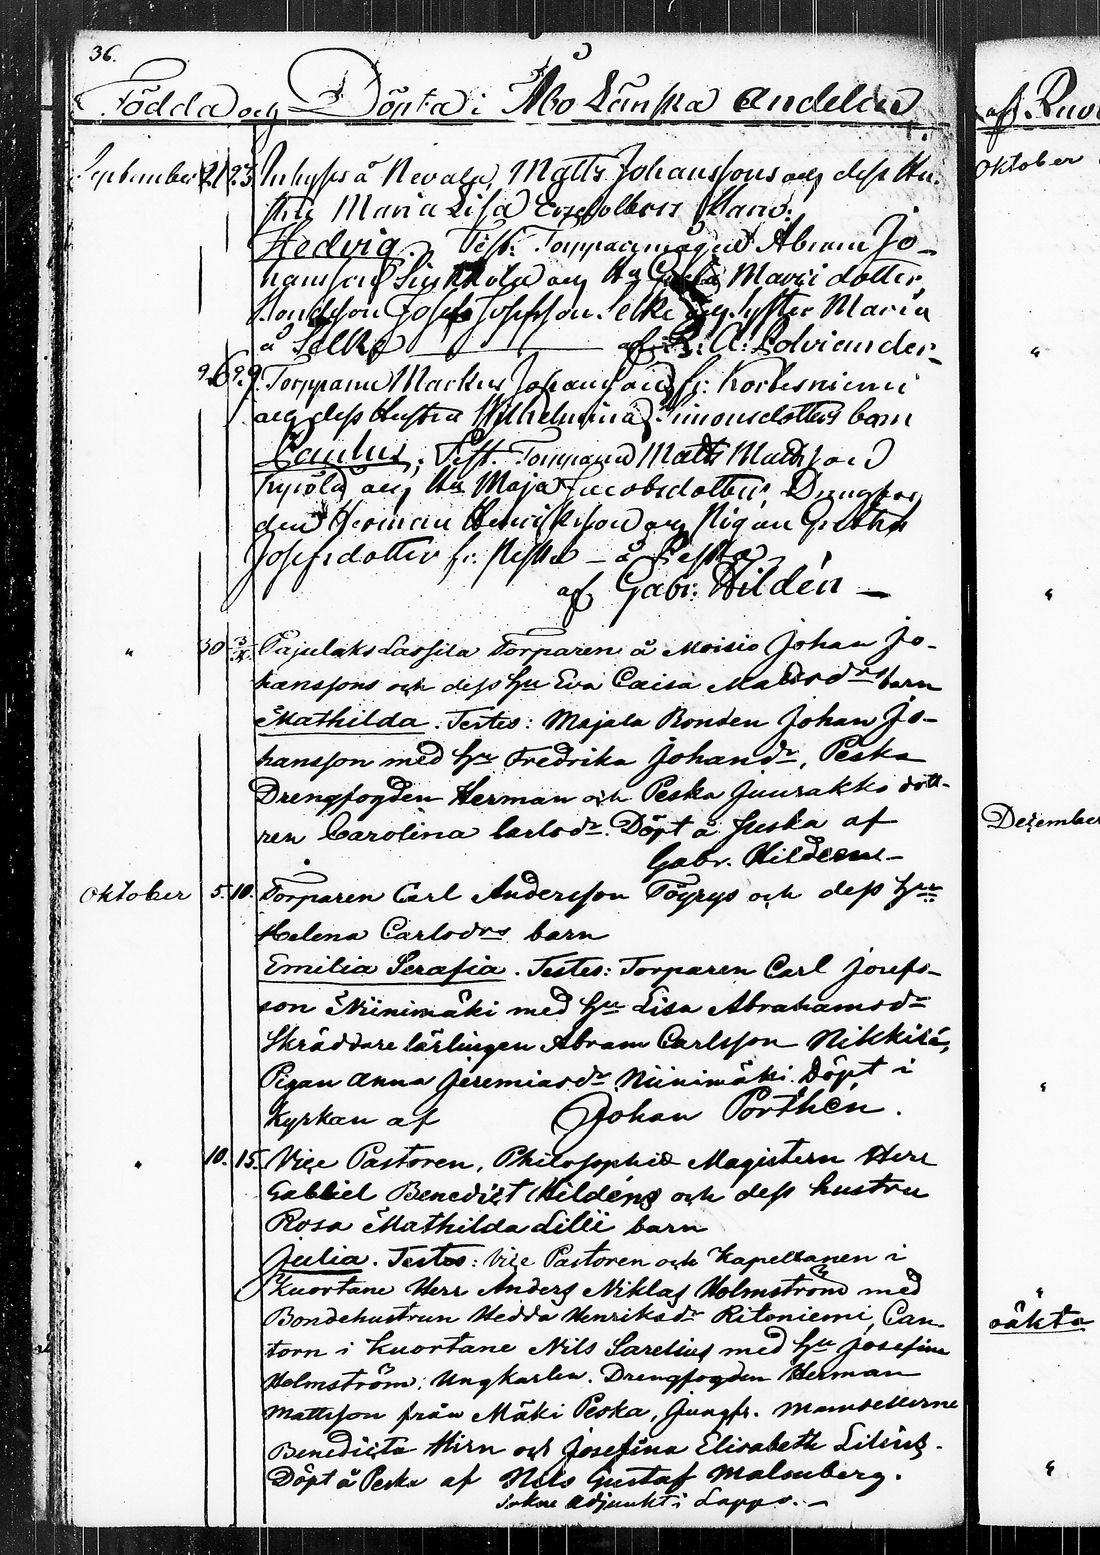 36.
Födda och Döpta i Åbo Länska andelen
September 21 23 Inhyses å Nevala, Matts Johanssons och dess Hu-
stru Maria Lisa barn:
Hedvig. Test: Torpparmågen Abram Jo-
hansson och Hu Maria dotter,
Bondeson Josef Josefsson Selke och Syster Maria
å Selke — af
26 29 Torpparen Markus Johansson fr. Korkesniemi
och dess Hustru Wilhelmina Simonsdotters barn
Paulus; Test. Torpparen Matts Mattsson
och Hu Maja Jacobsdotter, Drengfog
den Herman Henriksson och Pigan Gretha
Josefsdotter fr. Peska — å Peska
af Gabr. Hildén —
" 30 3/X Pajulaks Lassila Torparen å Moisio Johan Jo-
hanssons och dess Hu Eva Caisa Matsdrs barn
Mathilda. Testes: Majala Bonden Johan Jo-
hansson med Hu Fredrika Johandr, Peska
Drengfogden Herman och Peska Juurakko dott-
ren Carolina Carlsdr. Döpt å Peska af
Gabr. Hildén —
Oktober 5. 10. Torparen Carl Andersson Töyrys och dess Hus
Helena Carlsdrs barn
Emilia Serafia. Testes: Torparen Carl Josefs-
son Niinimäki med Hu Lisa Abrahamsdr
Skräddare lärlingen Abram Carlsson Nikkilä,
Pigan Anna Jeremiasdr Niinimäki. Döpt i
Kyrkan af Johan Porthén.
" 10. 15. Vice Pastoren, Philosophiæ Magistern Herr
Gabriel Benedict Hildéns och dess hustru
Rosa Mathilda Lilli barn
Julia. Testes: Vice Pastoren och Kapellanen i
Kuortane Herr Anders Niklas Holmström med
Bondehustrun Hedda Henriksdr Ritoniemi, Can-
torn i Kuortane Nils Sarelius med Hu Josefina
Holmström; Ungkarlen. Drengfogden Herman
Mattsson från Mäki Peska, Jungfr. Mamsellerne
Benedicta Hirn och Josefina Elisabeth Lilius.
Döpt å Peska af Nils Gustaf Malmberg.
Sokne Adjunkt i Lappo. —
af Ruo
Oktober
"
"
Dezember
"
"
oäkta
"